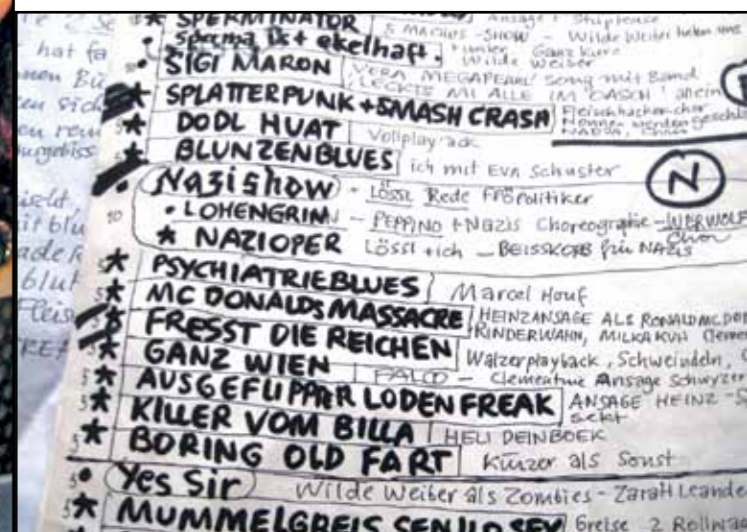 SPERMINATOR
Ansage + Striptease
5 MACHOS-SHOW - Wilde Weiber
• Sperma ist ekelhaft.
Ganz kurz
Wilde Weiber
• SIGI MARON
VERA MEGAPEARL Song mit Band
LECKTS MI ALLE IM OASCH allein
* SPLATTERPUNK + SMASH CRASH
Fleischhackerchor
* DODL HUAT
Vollplayback
* BLUNZENBLUES ich mit Eva Schuster
• Nazishow - LÖSSL Rede FPÖPOLITIKER
N
• LOHENGRIN - PEPPINO + NAZIS Choreographie - WERWOLF
Chor
* NAZIOPER LÖSSL + ich - BEISSKORB für NAZIS
* PSYCHIATRIEBLUES Marcel Houf
* MC DONALDS MASSACRE HEINZANSAGE ALS RONALD MC DON
RINDERWAHN, MILKAKUH Clemen
* FRESST DIE REICHEN
* GANZ WIEN Walzerplayback, Schweindeln,
FALCO - Clementine Ansage Schwyzer
* AUSGEFLIPPTER LODENFREAK ANSAGE HEINZ -
Sekt
* KILLER VOM BILLA HELI DEINBOEK
* BORING OLD FART Kürzer als Sonst
• Yes Sir Wilde Weiber als Zombies - Zarah Leande
* MUMMELGREIS SENILO SEX Greise 2 Rollwa